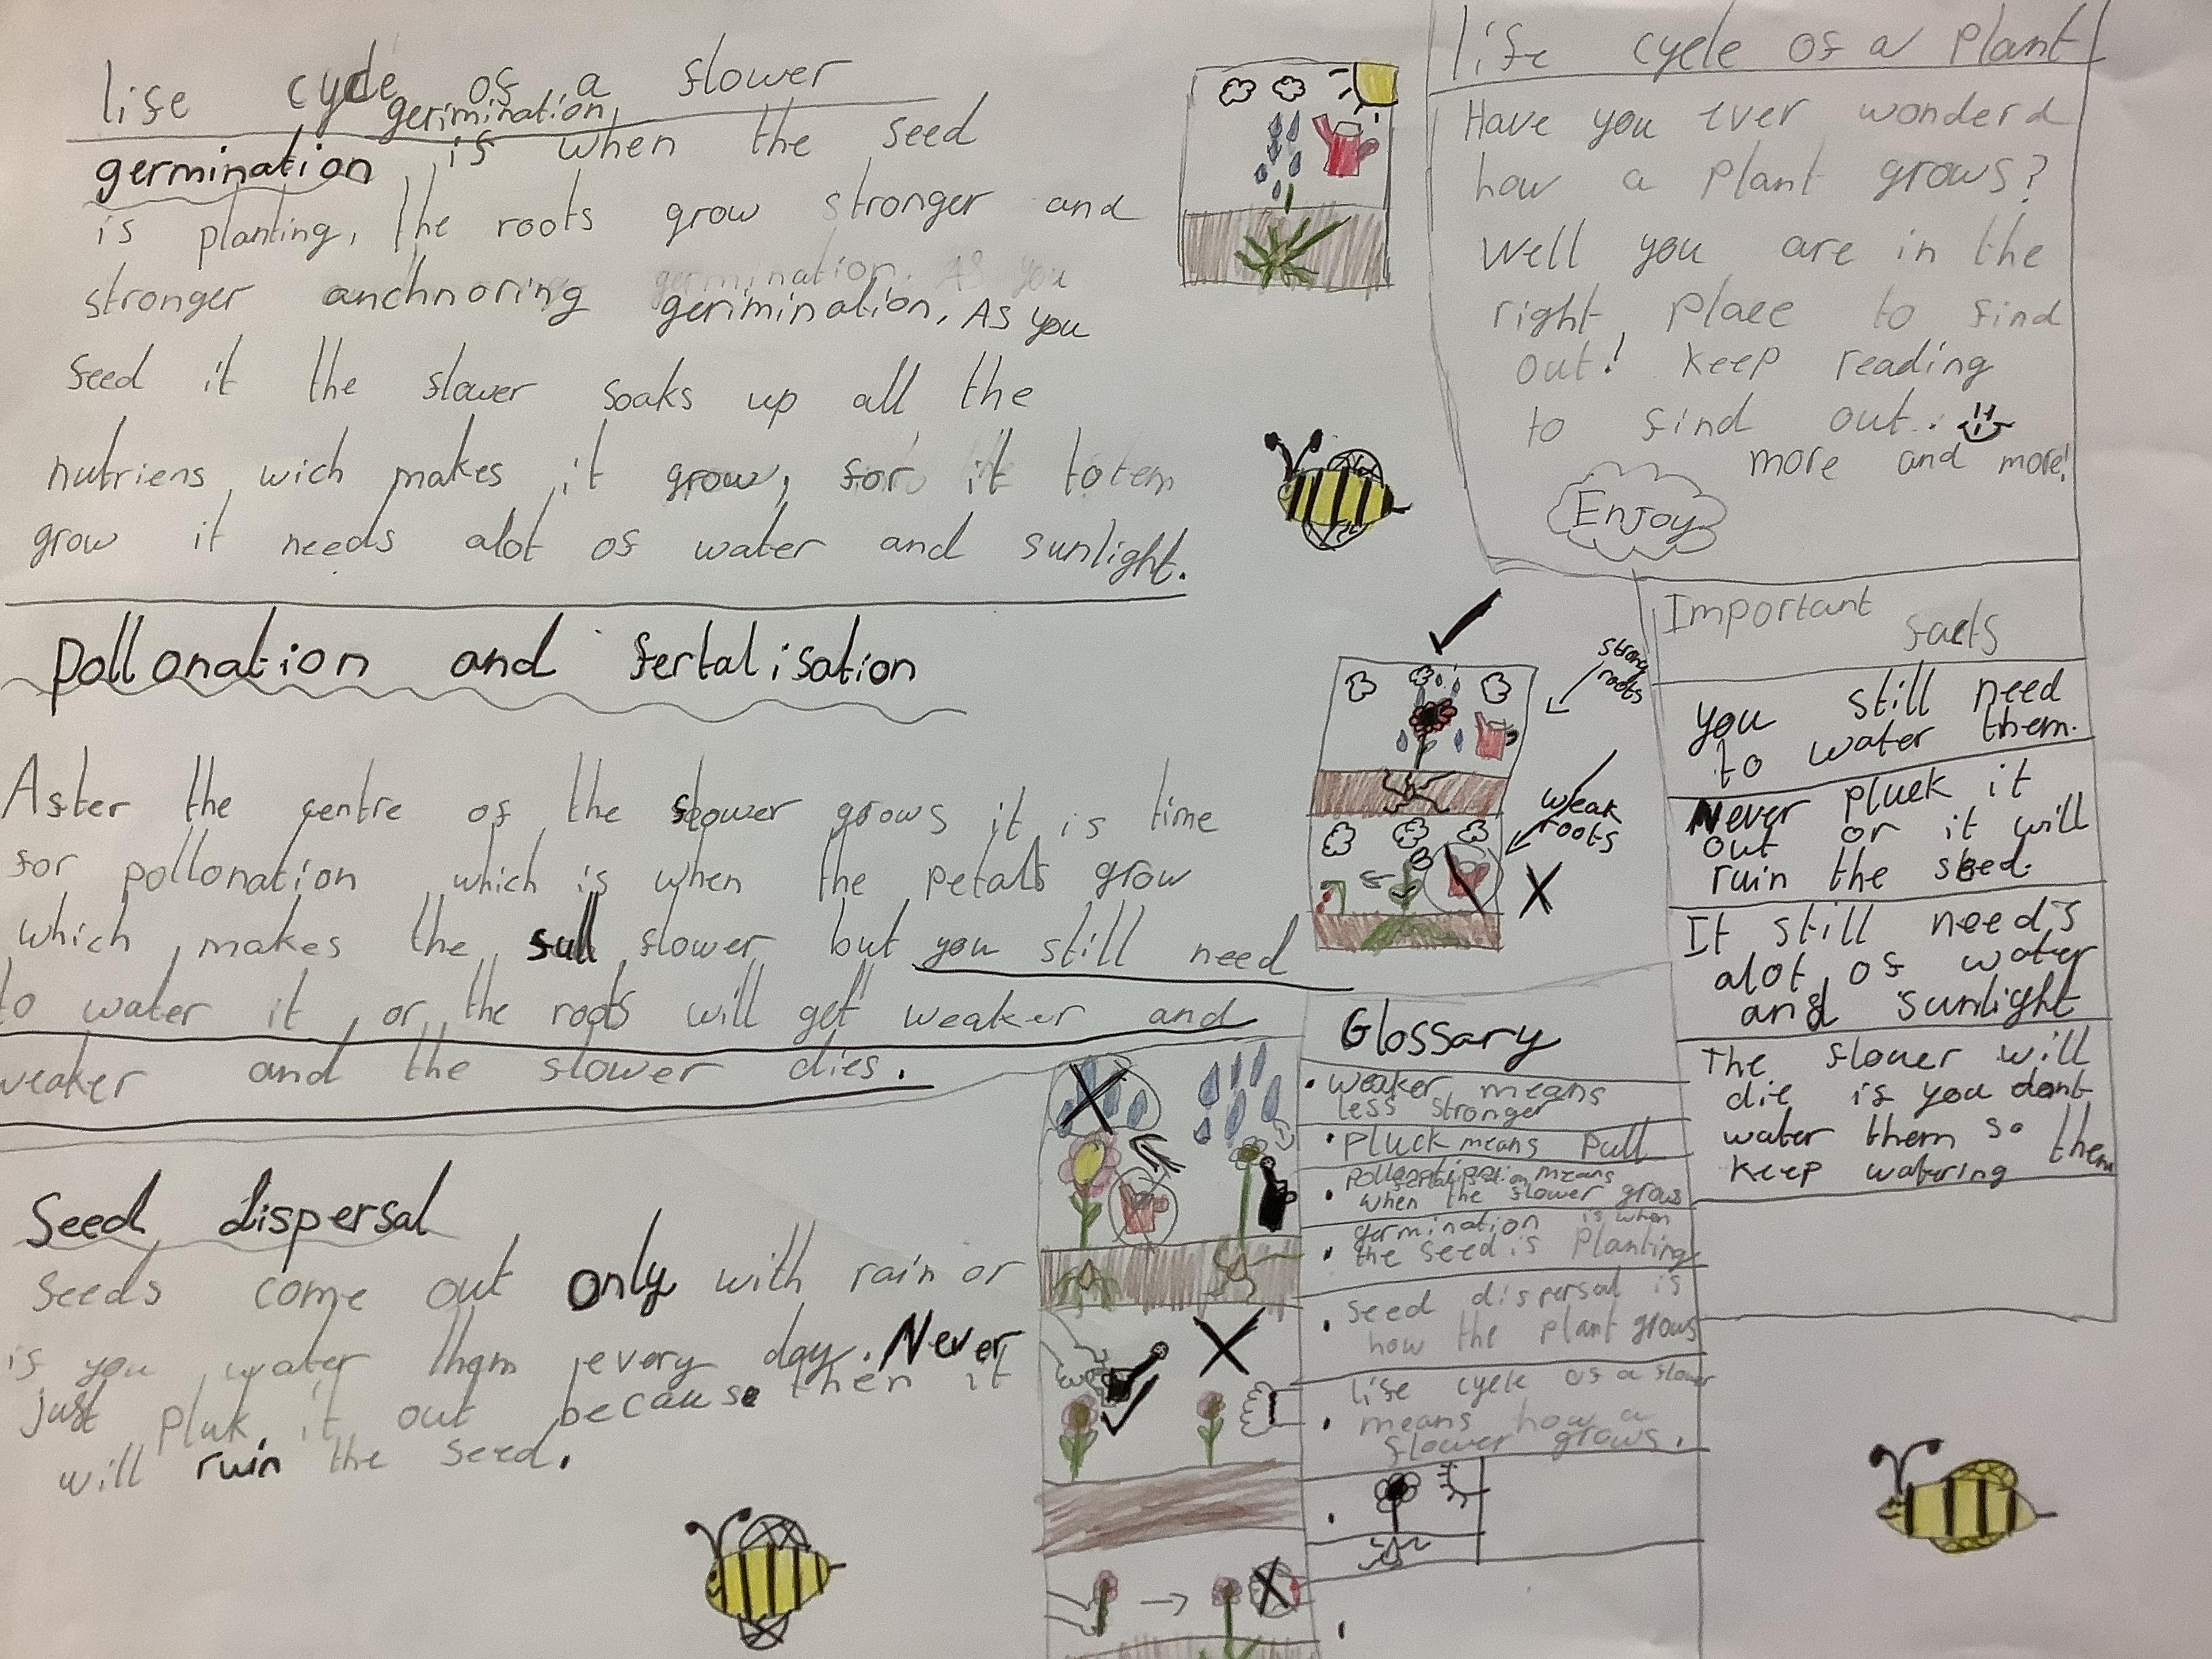 life cycle of a flower
germination
germination is when the seed
is planting, the roots grow stronger and
stronger anchnoring gerimination. As you
feed it the flower soaks up all the
nutriens wich makes it grow, for it to
grow it needs alot of water and sunlight.
Pollonation and fertalisation
After the centre of the flower grows it is time
for pollonation which is when the petals grow
which makes the full flower but you still need
to water it or the roots will get weaker and
weaker and the flower dies.
Seed dispersal
Seeds come out only with rain or
if you water them every day. Never
just pluk it out because then it
will ruin the seed.
life cycle of a plant
Have you ever wonderd
how a plant grows?
Well you are in the
right place to find
out! keep reading
to find out.
more and more!
Enjoy
strong
roots
weak
roots
Important
facts
You still need
to water them.
Never pluck it
out or it will
ruin the seed.
It still need's
alot of water
and sunlight
The flower will
die if you dont
water them so
keep watering them
Glossary
• weaker means
less stronger
• Pluck means Pull
• means
when the flower grows
• germination is when
the seed is planting
• seed dispersal is
how the plant grows
• life cycle of a flower
means how a
flower grows.